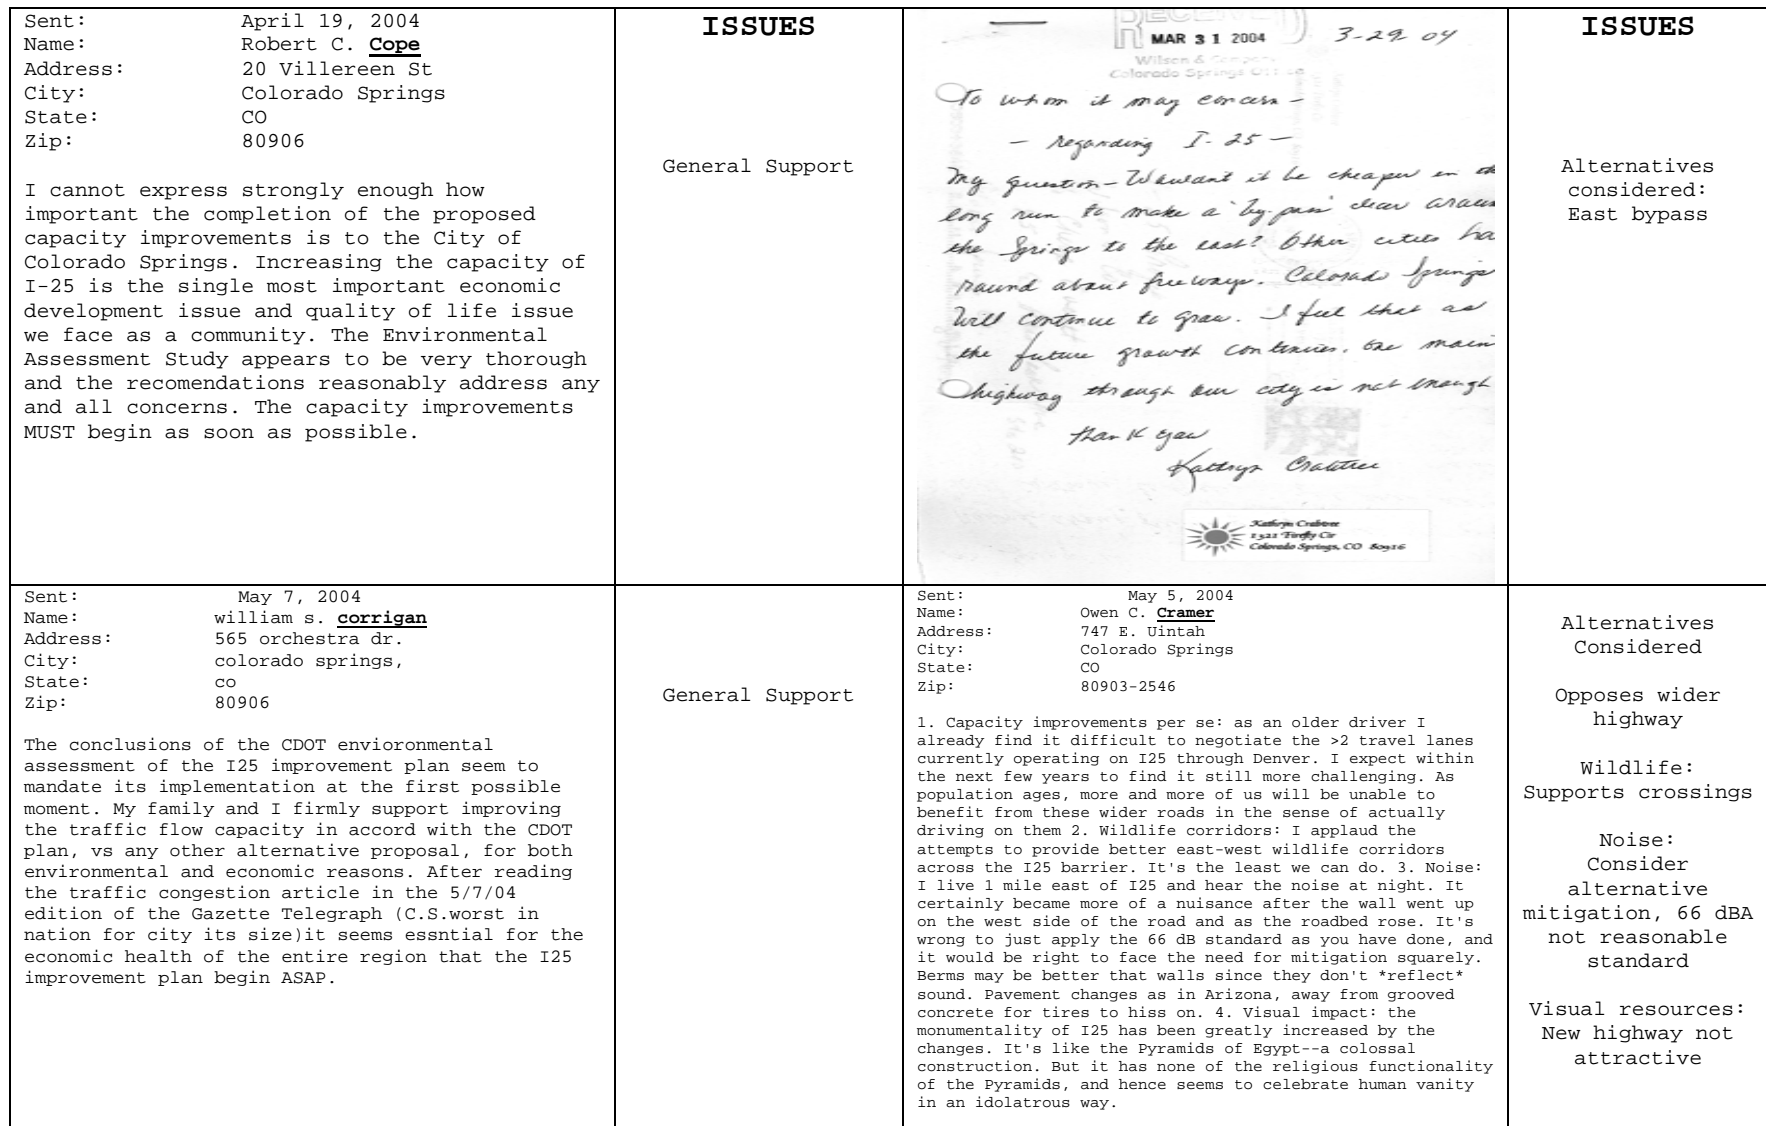 Sent: April 19, 2004
Name: Robert C. Cope
Address: 20 Villereen St
City: Colorado Springs
State: CO
Zip: 80906
I cannot express strongly enough how
important the completion of the proposed
capacity improvements is to the City of
Colorado Springs. Increasing the capacity of
I-25 is the single most important economic
development issue and quality of life issue
we face as a community. The Environmental
Assessment Study appears to be very thorough
and the recomendations reasonably address any
and all concerns. The capacity improvements
MUST begin as soon as possible.
ISSUES
General Support
RECEIVED
MAR 31 2004
3-29 04
Wilson & Company
Colorado Springs Office
To whom it may concern -
- regarding I-25 -
My question - Wouldn't it be cheaper in
long run to make a "by-pass" clear
the Springs to the east? Other cities
round about freeways. Colorado Springs
will continue to grow. I feel that as
the future growth continues, one main
highway through our city is not enough
Thank you
Kathryn Crabtree
Kathryn Crabtree
1321 Firefly Cir
Colorado Springs, CO 80916
ISSUES
Alternatives
considered:
East bypass
Sent: May 7, 2004
Name: william s. corrigan
Address: 565 orchestra dr.
City: colorado springs,
State: co
Zip: 80906
The conclusions of the CDOT envioronmental
assessment of the I25 improvement plan seem to
mandate its implementation at the first possible
moment. My family and I firmly support improving
the traffic flow capacity in accord with the CDOT
plan, vs any other alternative proposal, for both
environmental and economic reasons. After reading
the traffic congestion article in the 5/7/04
edition of the Gazette Telegraph (C.S.worst in
nation for city its size)it seems essntial for the
economic health of the entire region that the I25
improvement plan begin ASAP.
General Support
Sent: May 5, 2004
Name: Owen C. Cramer
Address: 747 E. Uintah
City: Colorado Springs
State: CO
Zip: 80903-2546
1. Capacity improvements per se: as an older driver I
already find it difficult to negotiate the >2 travel lanes
currently operating on I25 through Denver. I expect within
the next few years to find it still more challenging. As
population ages, more and more of us will be unable to
benefit from these wider roads in the sense of actually
driving on them 2. Wildlife corridors: I applaud the
attempts to provide better east-west wildlife corridors
across the I25 barrier. It's the least we can do. 3. Noise:
I live 1 mile east of I25 and hear the noise at night. It
certainly became more of a nuisance after the wall went up
on the west side of the road and as the roadbed rose. It's
wrong to just apply the 66 dB standard as you have done, and
it would be right to face the need for mitigation squarely.
Berms may be better that walls since they don't *reflect*
sound. Pavement changes as in Arizona, away from grooved
concrete for tires to hiss on. 4. Visual impact: the
monumentality of I25 has been greatly increased by the
changes. It's like the Pyramids of Egypt--a colossal
construction. But it has none of the religious functionality
of the Pyramids, and hence seems to celebrate human vanity
in an idolatrous way.
Alternatives
Considered
Opposes wider
highway
Wildlife:
Supports crossings
Noise:
Consider
alternative
mitigation, 66 dBA
not reasonable
standard
Visual resources:
New highway not
attractive